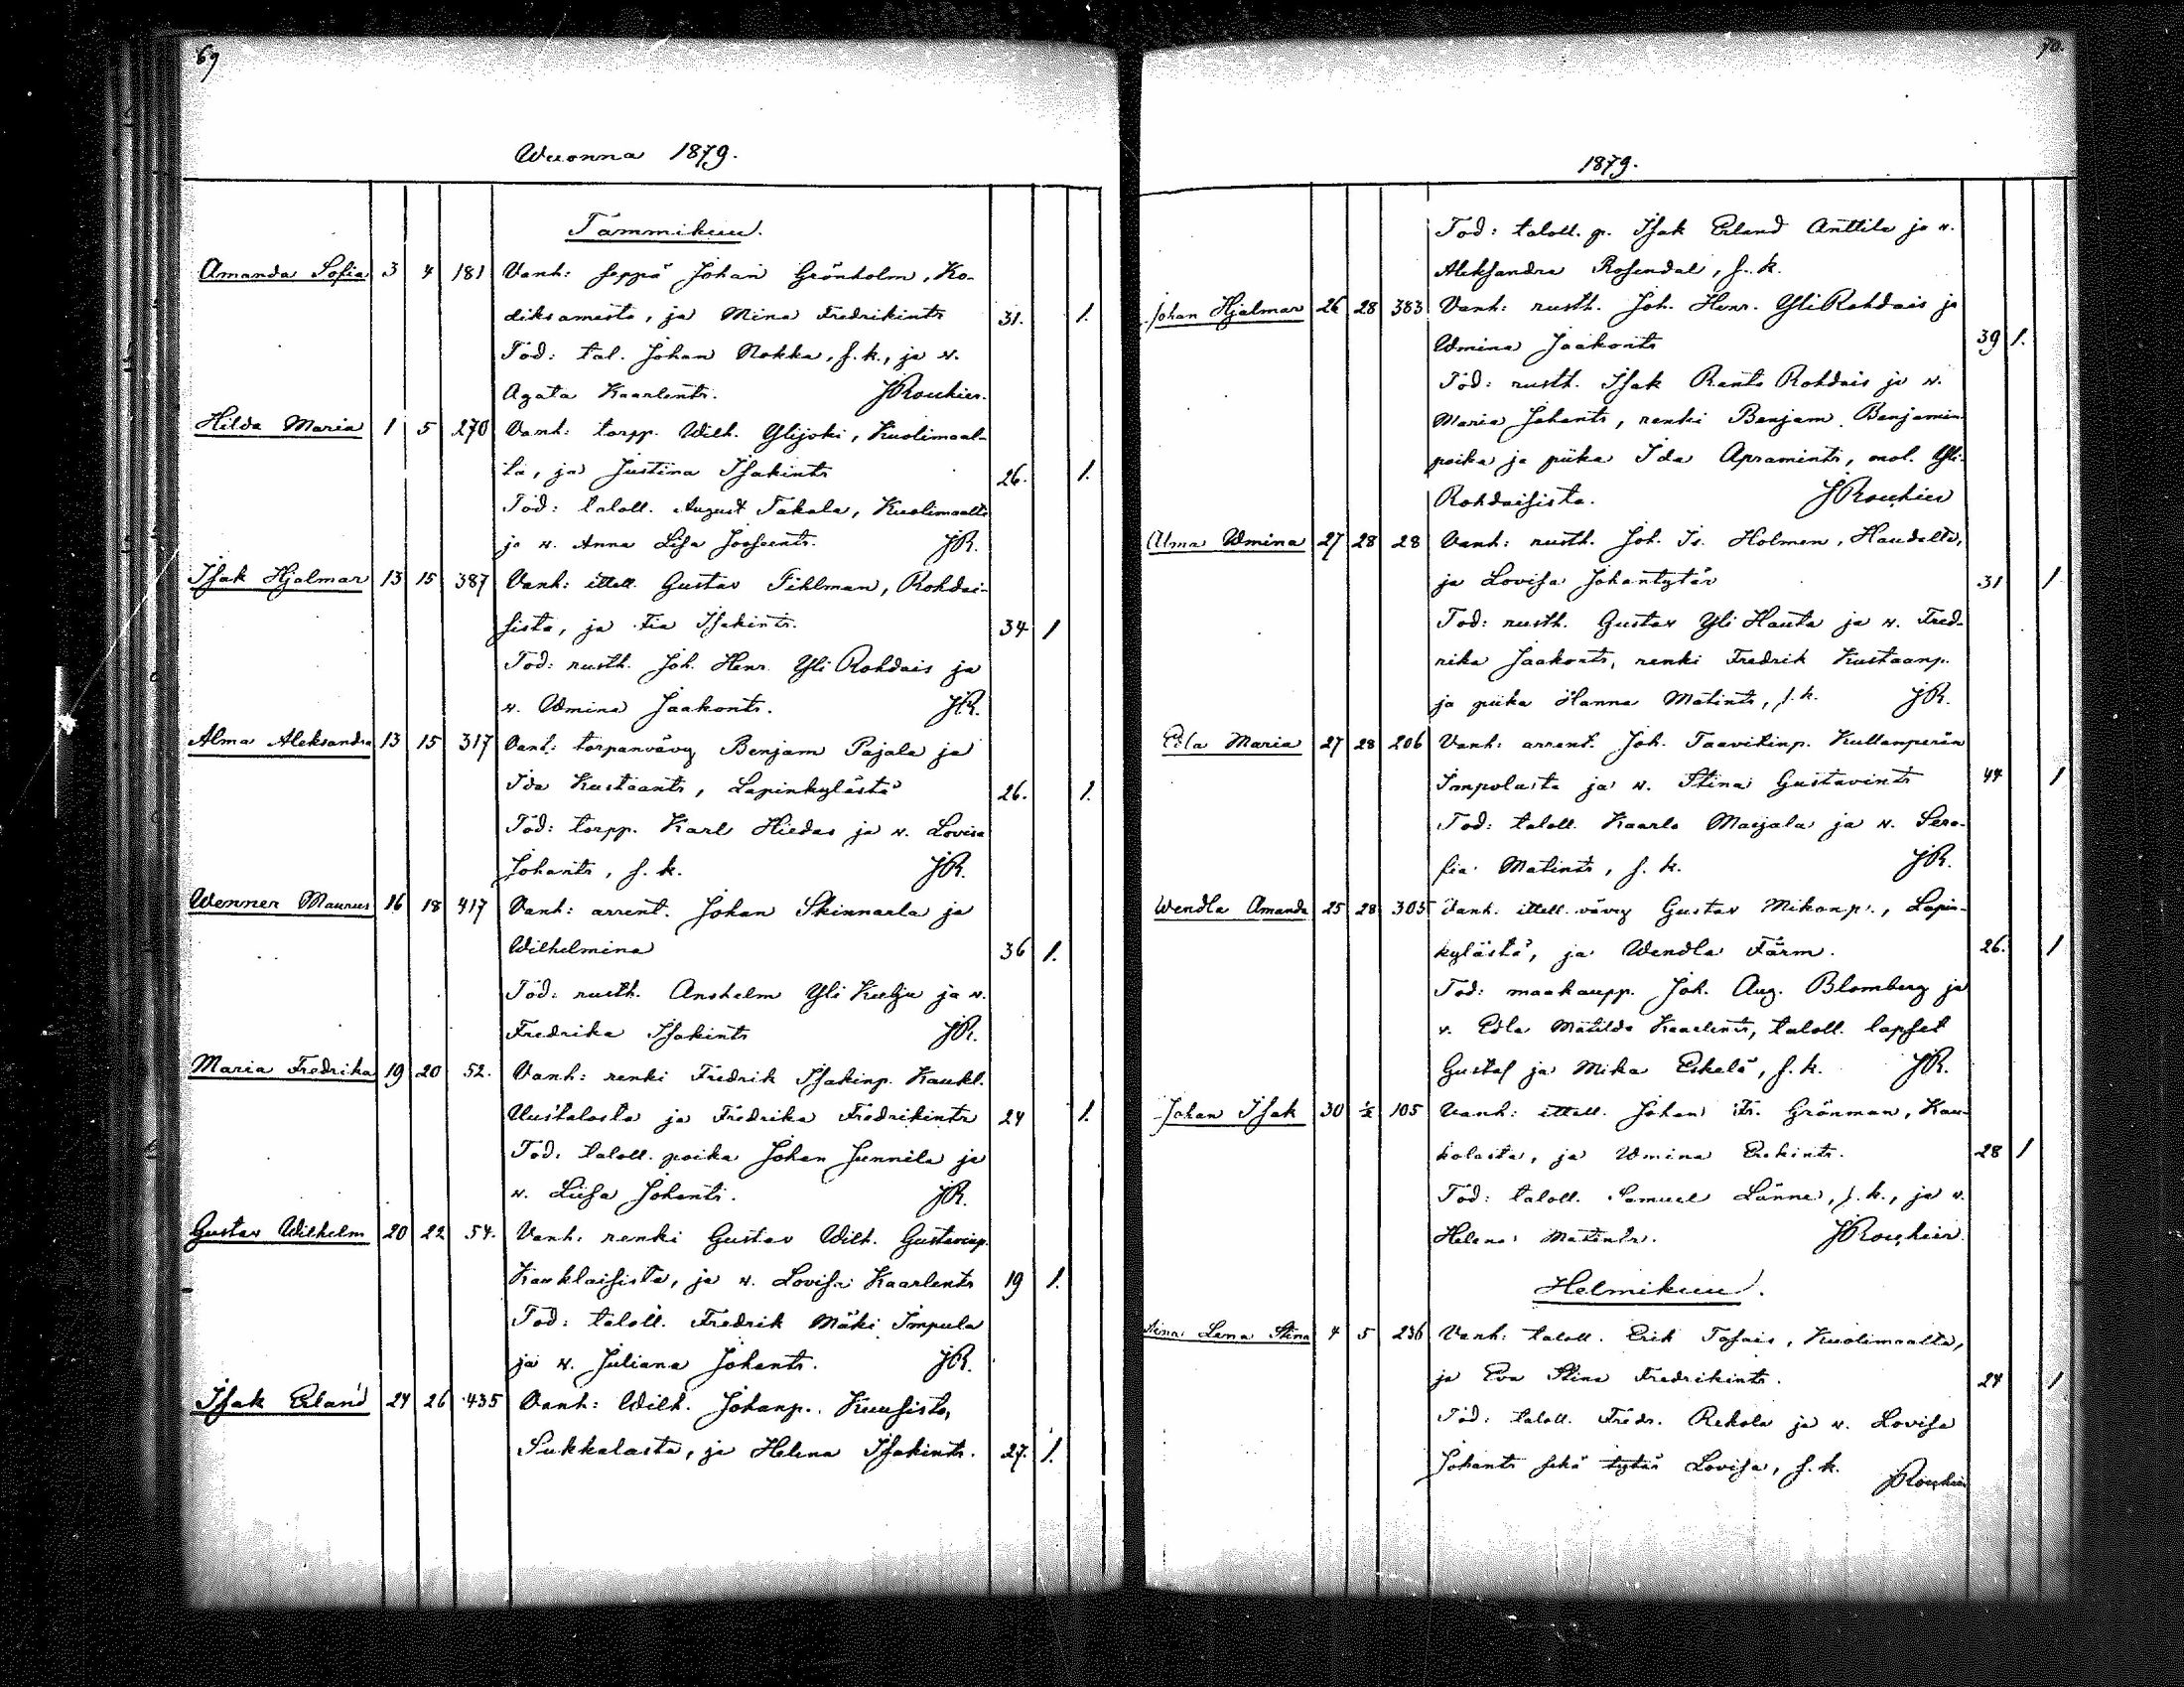 69
Wuonna 1879.
Tammikuu.
Amanda Sofia 3 4 181 Vanh: seppä Johan Grönholm, Ko-
diksamista, ja Mina Fredrikintr 31. 1.
Tod: tal. Johan Nokka, s. k., ja v.
Agata Kaarlentr. JRoukier.
Hilda Maria 1 5 270 Vanh: torpp. Wilh. Ylijoki, Kuolimaal-
ta, ja Justina Isakintr 26. 1.
Tod: taloll. August Takala, Kuolimaalta
ja v. Anna Lisa Jooseentr. JR.
Isak Hjalmar 13 15 387 Vanh: ittell. Gustav Fihlman, Rohdai-
sista, ja Fia Isakintr. 34 1
Tod: rusth. Joh. Henr. Yli Rohdais ja
v. Wmina Jaakontr. JR.
Alma Aleksandra 13 15 317 Vanh: torpanvävy Benjam Pajala ja
Ida Kustaantr, Lapinkylästä 26. 1.
Tod: torpp. Karl Hiedas ja v. Lovisa
Johantr, s. k. JR.
Wenner Maurus 16 18 417 Vanh: arrent. Johan Skinnarla ja
Wilhelmina 36 1.
Tod: rusth. Anshelm Yli Kulju ja v.
Fredrika Isakintr JR.
Maria Fredrika 19 20 52. Vanh: renki Fredrik Isakinp. Kaukl.
Uustalosta ja Fredrika Fredrikintr 24 1.
Tod: taloll. poika Johan Junnila ja
v. Liisa Johantr. JR.
Gustav Wilhelm 20 22 54. Vanh: renki Gustav Wilh. Gustavinp.
Kauklaisista, ja v. Lovisa Kaarlentr 19 1.
Tod: taloll. Fredrik Mäki Impula
ja v. Juliana Johantr. JR.
Isak Erland 24 26 435 Vanh: Wilh. Johanp. Kuusisto,
Sukkalasta, ja Helena Isakintr. 27. 1.
70.
1879.
Tod: taloll. p. Isak Erland Anttila ja v.
Aleksandra Rosendal, s. k.
Johan Hjalmar 26 28 383 Vanh: rusth. Joh. Henr. Yli Rohdais ja
Wmina Jaakontr 39 1.
Tod: rusth. Isak Ranta Rohdais ja v.
Maria Johantr, renki Benjam. Benjamin
poika ja piika Ida Apramintr, mol. Yli-
Rohdaisista. JRoukier
Alma Wmina 27 28 28 Vanh: rusth. Joh. Is. Holmen, Haudalta,
ja Lovisa Johantytär 31 1
Tod: rusth. Gustav Yli Hauta ja v. Fred-
rika Jaakontr, renki Fredrik Kustaanp.
ja piika Hanna Matintr, s. k. JR.
Edla Maria 27 28 206 Vanh: arrent. Joh. Taavitinp. Kullanperän
Impolasta ja v. Stina Gustavintr 44 1
Tod: taloll. Kaarlo Maijala ja v. Sera-
fia Matintr, s. k. JR.
Wendla Amanda 25 28 305 Vanh. ittell. vävy Gustav Mikonp., Lapin-
kylästä, ja Wendla Färm. 26. 1
Tod: maakaupp. Joh. Aug. Blomberg ja
v. Edla Matilda Kaarlentr, taloll. lapset
Gustaf ja Mika Eskelä, s. k. JR.
Johan Isak 30 1/2 105 Vanh: ittell. Johan Fr. Grönman, Kau-
kolasta, ja Wmina Erkintr. 28 1
Tod: taloll. Samuel Länne, s. k., ja v.
Helena Matintr. JRoukier.
Helmikuu.
Lena Stina 4 5 236 Vanh: taloll. Erik Tofais, Kuolimaalta,
ja Eva Stina Fredrikintr. 24 1
Tod: taloll. Fredr. Rekola ja v. Lovisa
Johantr sekä tytär Lovisa, s. k. JRoukier